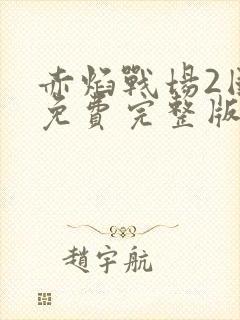 赤焰戰場2
免費完整版
趙宇航